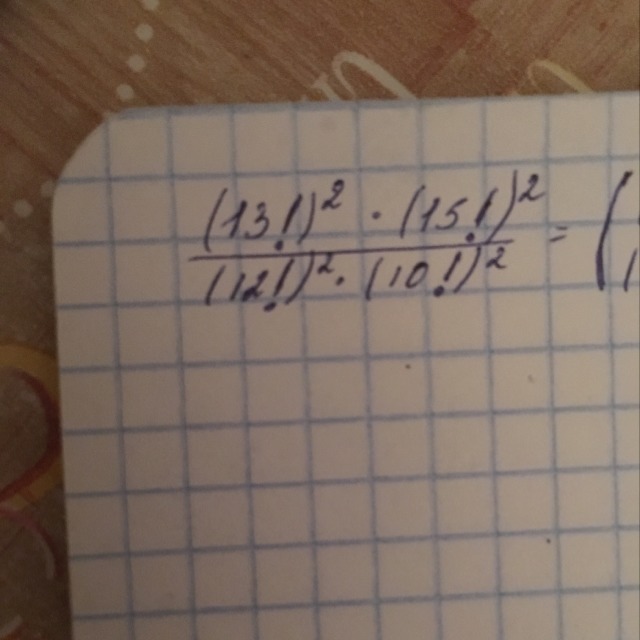 (13!)² · (15!)² = (
(12!)² · (10!)²